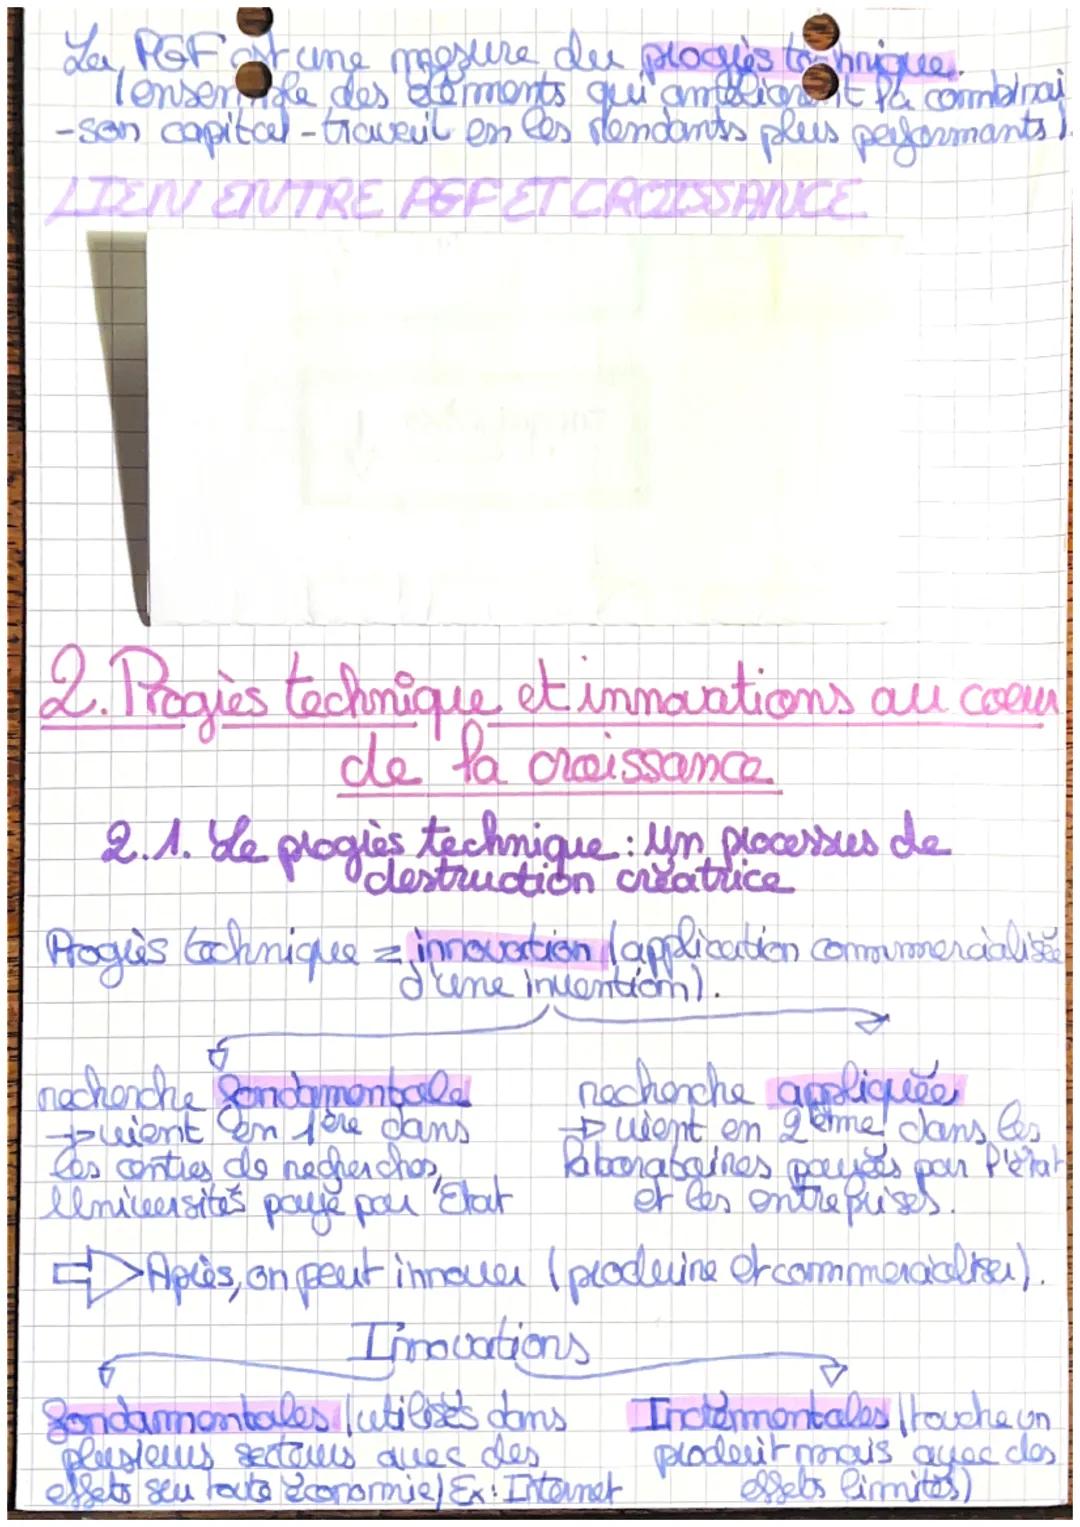 La PGF est une mesure du progrès technique.
(ensemble des éléments qui améliorent la combinai
-son capital-travail en les rendants plus performants).
LIEN ENTRE PGF ET CROISSANCE
2. Progrès technique et innovations au coeur
de la croissance
2.1. Le progrès technique : Un processus de
destruction créatrice
Progrès technique = innovation (application commmercialisée
d'une invention).
recherche fondamentale
→ vient en 1ère dans
les centres de recherches,
Universités payé par Etat
recherche appliquée
→ vient en 2ème dans les
laboratoires payés par l'état
et les entreprises.
⇒ Après, on peut innover (produire et commercialiser).
Innovations
fondamentales (utilisés dans
plusieurs secteurs avec des
effets su toute économie) Ex: Internet
Incrémentales (touche un
produit mais avec des
effets limités)